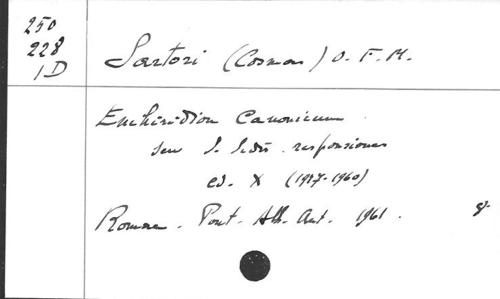 250
228
1D
Sartori (Cosmas) O. F. M.
Enchiridion Canonicum
seu S. Sedis responsiones
ed. X (1917-1960)
Romae. Pont. Ath. Ant. 1961.